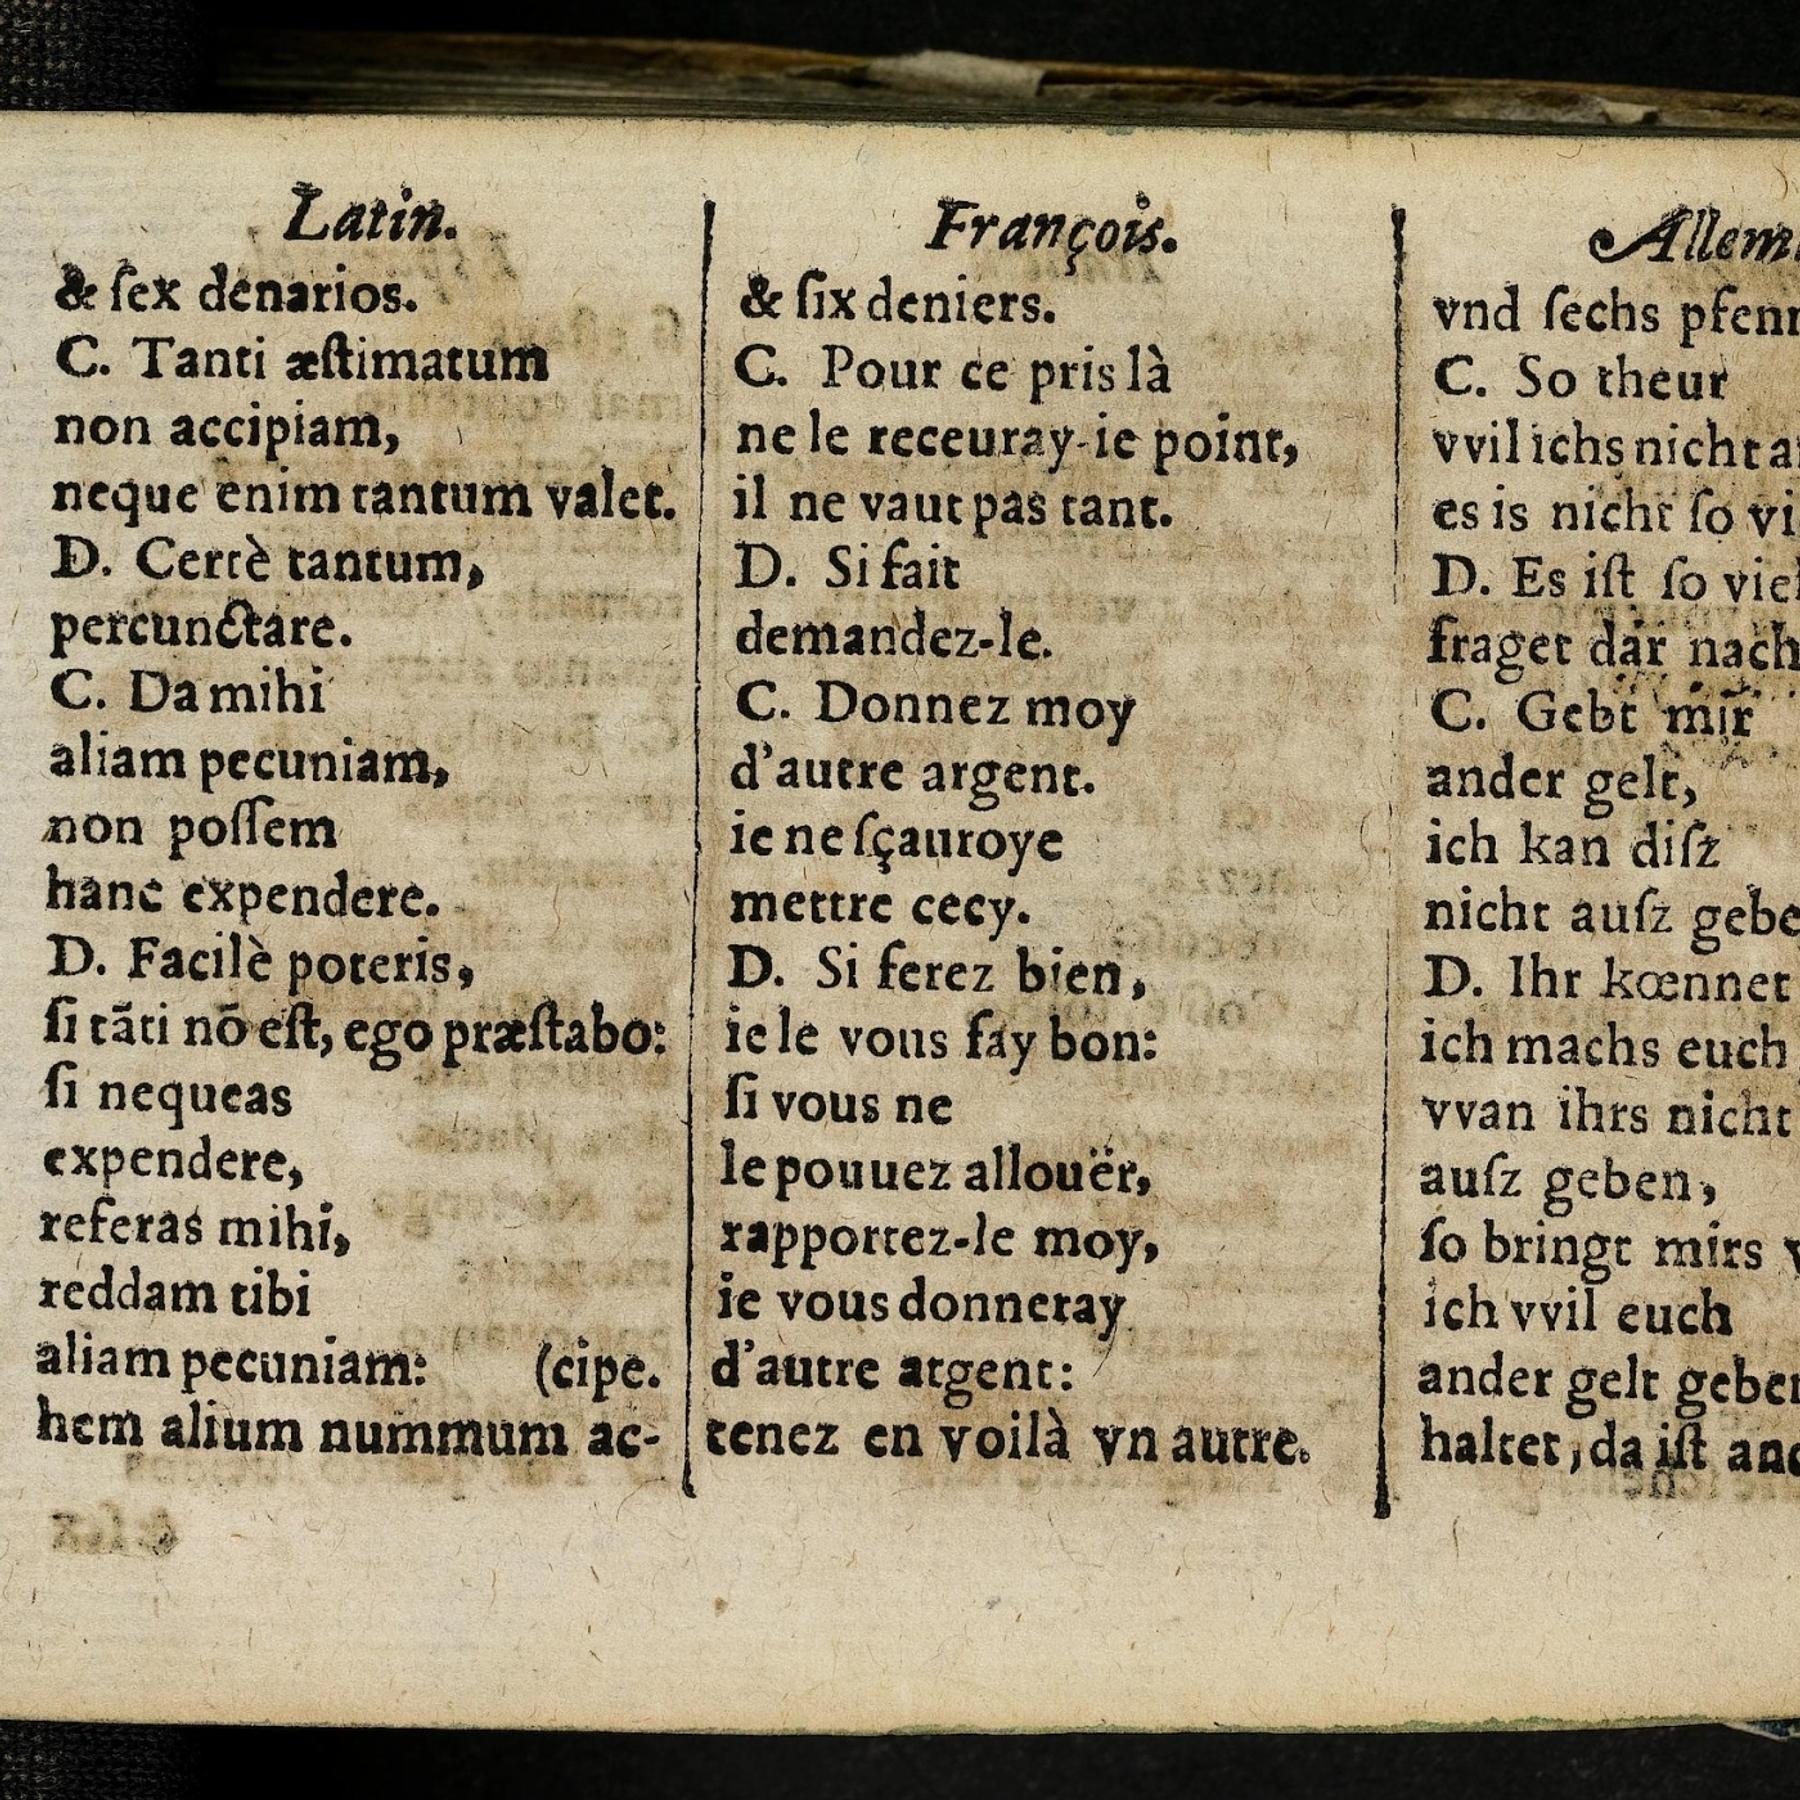 Latin.
& ſex denarios.
C. Tanti æſtimatum
non accipiam,
neque enim tantum valet.
D. Certè tantum,
percunctare.
C. Da mihi
aliam pecuniam,
non poſſem
hanc expendere.
D. Facilè poteris,
ſi tãti nõ eſt, ego præſtabo:
ſi nequeas
expendere,
referas mihi,
reddam tibi
aliam pecuniam: (cipe.
hem alium nummum ac-
François.
& ſix deniers.
C. Pour ce pris là
ne le receuray-ie point,
il ne vaut pas tant.
D. Si fait
demandez-le.
C. Donnez moy
d'autre argent.
ie ne ſçauroye
mettre cecy.
D. Si ferez bien,
ie le vous fay bon:
ſi vous ne
le pouuez allouër,
rapportez-le moy,
ie vous donneray
d'autre argent:
tenez en voilà vn autre.
Allem
vnd ſechs pfen
C. So theur
vvil ichs nicht a
es is nicht ſo vi
D. Es iſt ſo viel
fraget dar nach
C. Gebt mir
ander gelt,
ich kan diſz
nicht auſz gebe
D. Ihr kœnnet
ich machs euch
vvan ihrs nicht
auſz geben,
ſo bringt mirs
ich vvil euch
ander gelt geben
haltet, da iſt and